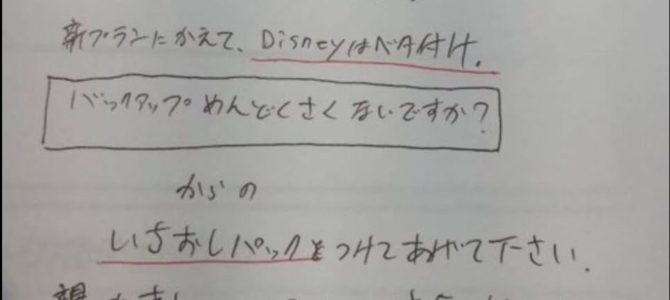 新プランにかえて、Disneyはベタ付け。
バックアップめんどくさくないですか?
からの
いちおしパックをつけてあげて下さい。
親